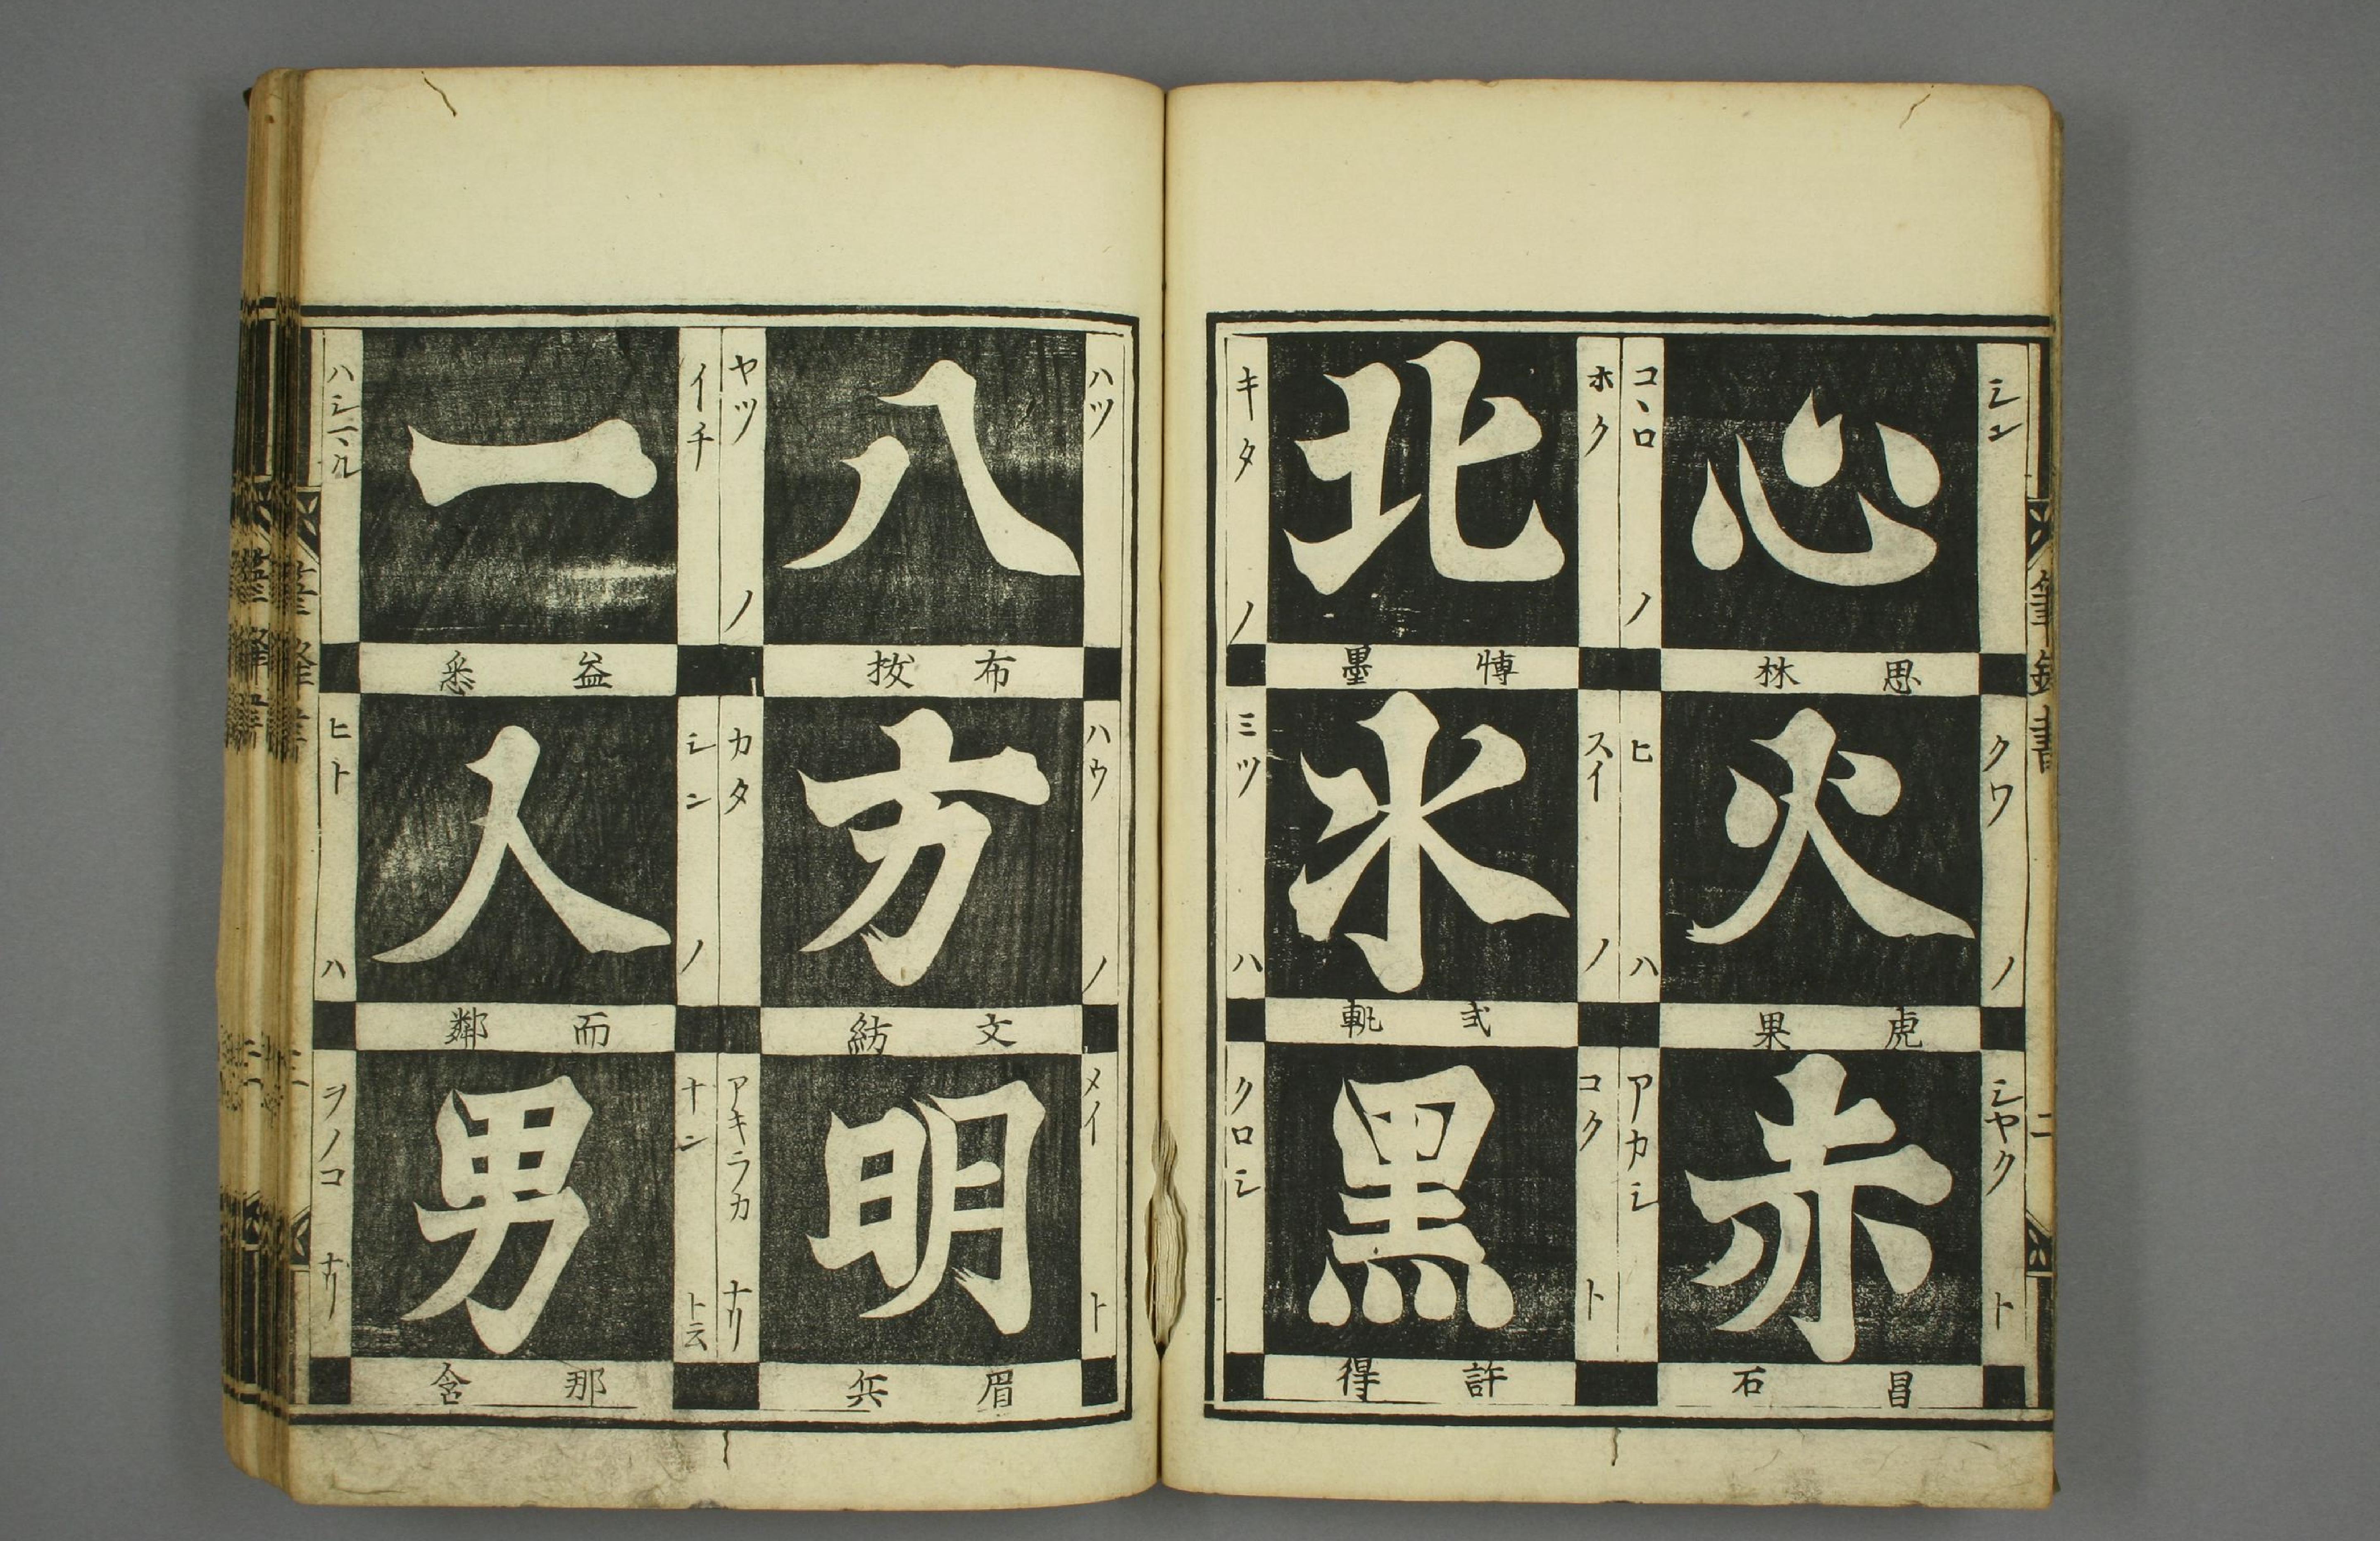 シン
心
コヽロ ノ
思 林
クワ ノ
火
ヒ ハ
虎 果
シヤク ト
赤
アカシ
昌 石
ホク
北
キタ ノ
博 墨
スイ ノ
水
ミツ ハ
コク ト
黒
クロシ
許 得
ハツ
八
ヤツ ノ
布 抜
ハウ ノ
方
カタ
文 紡
メイ ト
明
アキラカ ナリ
眉 兵
イチ
一
益 悉
シン ノ
人
ヒト ハ
而 鄰
ナン ト云
男
ヲノコ ナリ
那 含